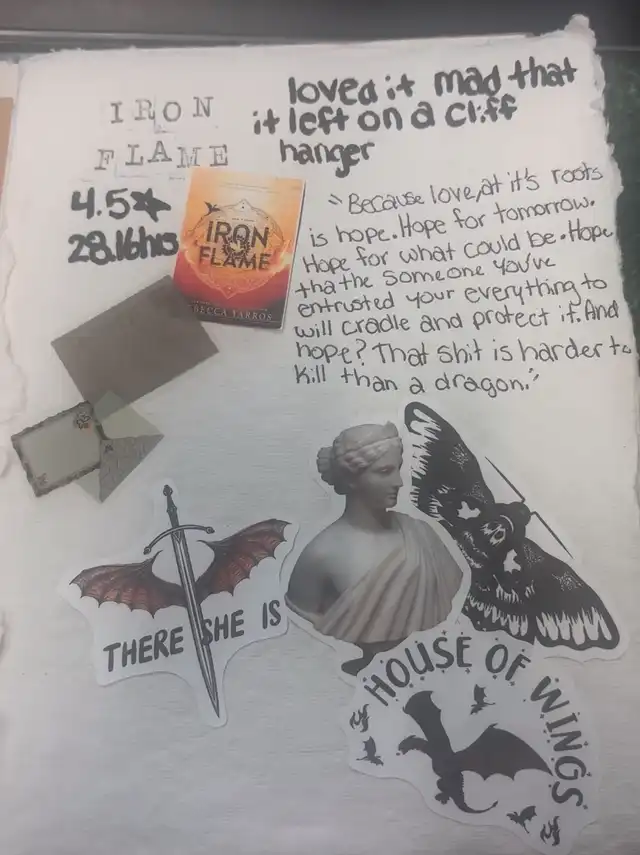 IRON
FLAME
loved it mad that
it left on a cliff
hanger
4.5★
28.16hrs
IRON
FLAME
REBECCA YARROS
"Because love, at it's roots
is hope. Hope for tomorrow.
Hope for what could be. Hope
tha the someone you've
entrusted your everything to
will cradle and protect it. And
hope? That shit is harder to
kill than a dragon."
THERE SHE IS
HOUSE OF WINGS